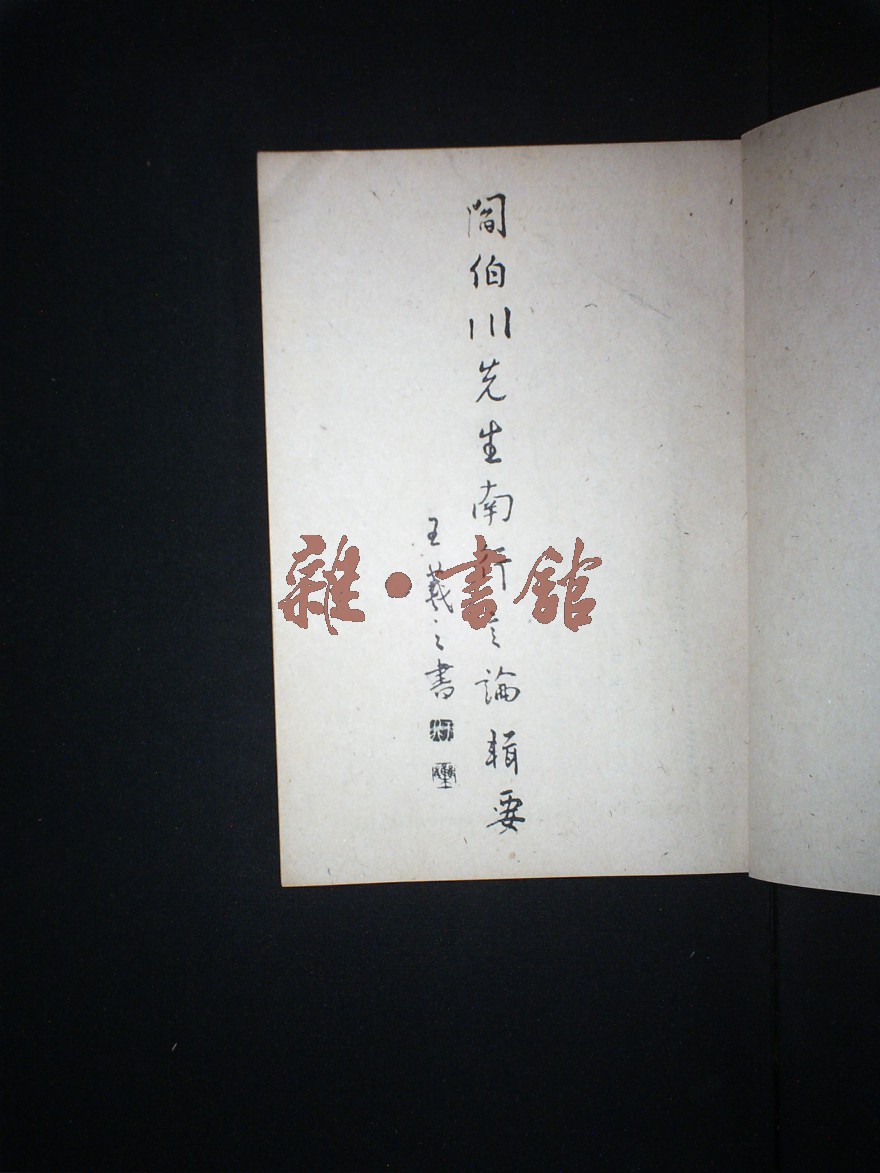 閻伯川先生南行言論輯要
王羲之書
雜·書館